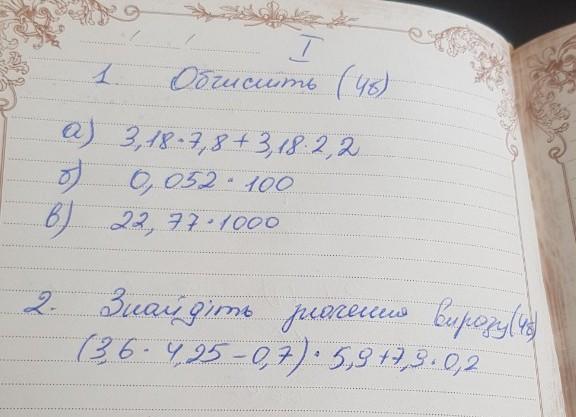 I
1. Обчисліть (4б)
а) 3,18·7,8+3,18·2,2
б) 0,052·100
в) 22,77·1000
2. Знайдіть значення виразу(4б)
(3,6·4,25-0,7)·5,9+7,9·0,2